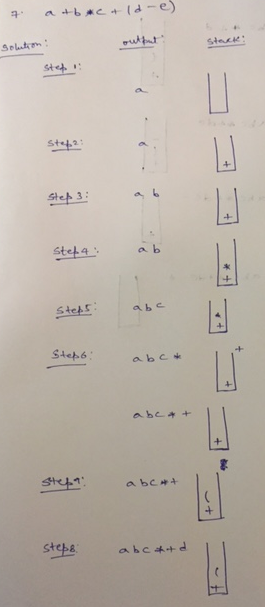 7. a+b*c+(d-e)
Solution: output: stack:
Step 1: a
Step2: a +
Step 3: a b +
Step 4: a b * +
Step5: a b c * +
Step6: a b c * + +
a b c * + +
Step 9: a b c * + ( +
Step 8: a b c * + d ( +